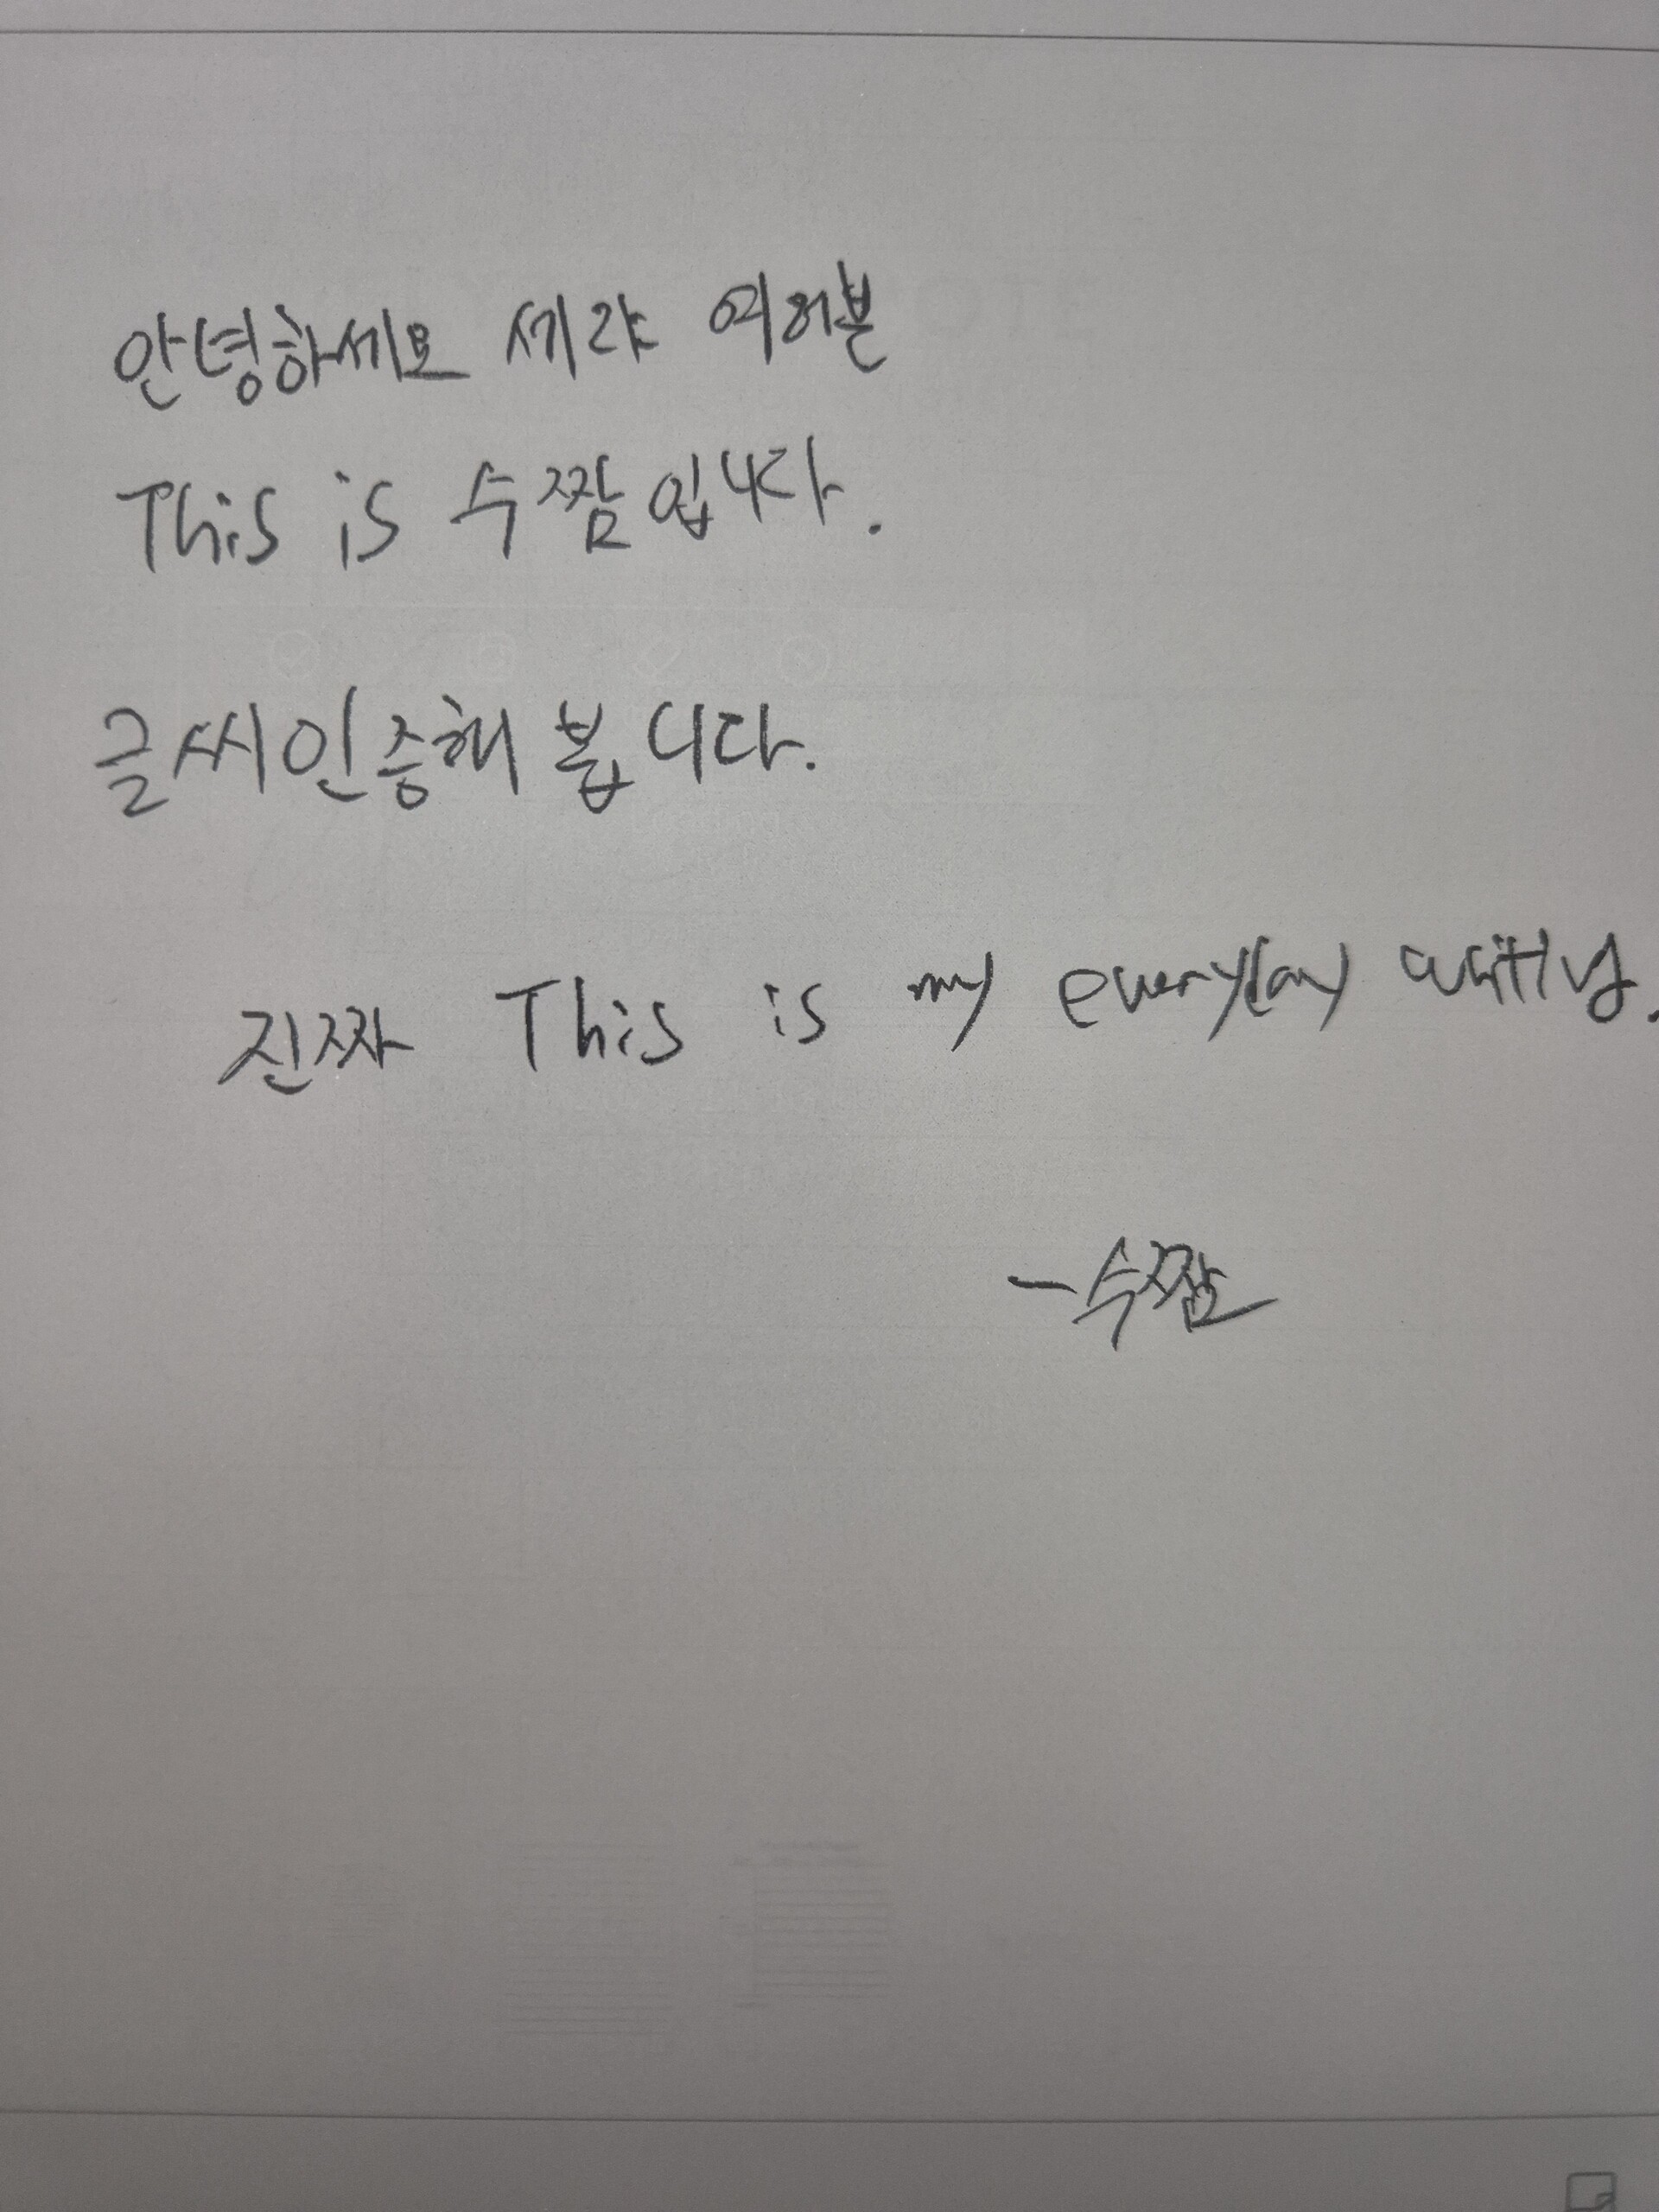 안녕하세요 세략 여러분
This is 수짬입니다.
글씨인증해 봅니다.
진짜 This is my everyday writing.
-수짬